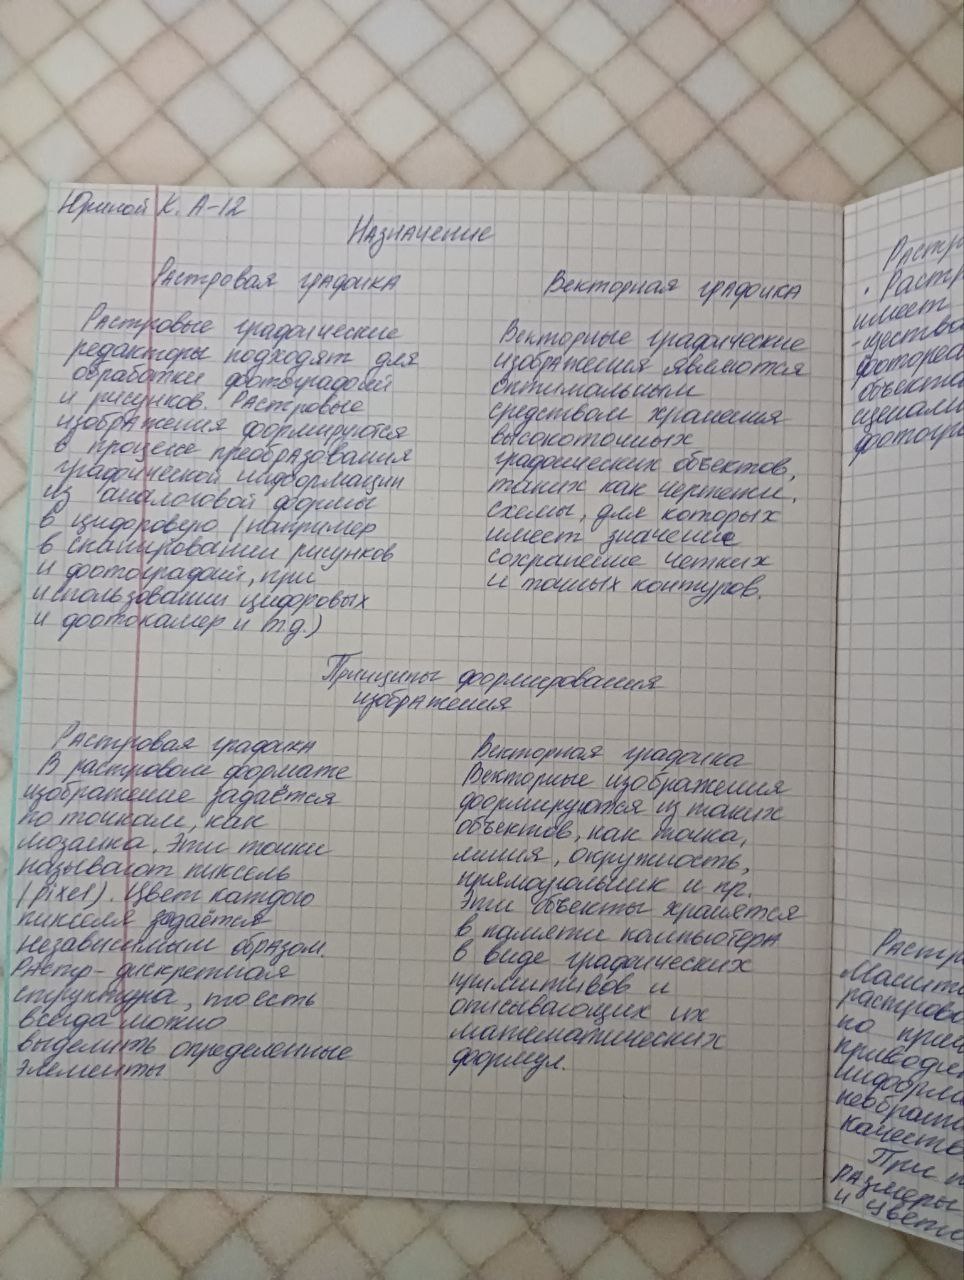 Юриной К. А-12
Назначение
Растровая графика
Растровые графические
редакторы подходят для
обработки фотографий
и рисунков. Растровые
изображения формируются
в процессе преобразования
графической информации
из аналоговой формы
в цифоровую (например
в сканировании рисунков
и фотографий, при
использовании цифоровых
и фотокамер и т.д.)
Векторная графика
Векторные графические
изображения являются
оптимальным
средством хранения
высокоточных
графических объектов,
таких как чертежи,
схемы, для которых
имеет значение
сохранение четких
и точных контуров.
Принципы формирования
изображения
Растровая графика
В растровом формате
изображение задаётся
по точкам, как
мозаика. Эти точки
называют пиксель
(pixel). Цвет каждого
пикселя задаётся
независимым образом.
Растр - дискретная
структура, то есть
всегда можно
выделить определенные
элементы
Векторная графика
Векторные изображения
формируются из таких
объектов, как точка,
линия, окружность,
прямоугольник и пр.
Эти объекты хранятся
в памяти компьютера
в виде графических
примитивов и
описывающих их
математических
формул.
Растр
• Растр
имеет
фотореа
объекта
фотогра
Растр
растрово
по при
приводи
информа
необрати
качеств
При
размеры
и цвето